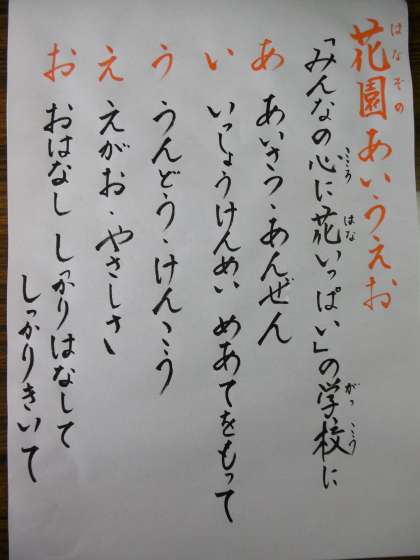 花園あいうえお
はなぞの
「みんなの心に花いっぱい」の学校に
こころ
はな
がっこう
あ あいさつ・あんぜん
い いっしょうけんめい めあてをもって
う うんどう・けんこう
え えがお・やさしさ
お おはなし しっかりはなして
しっかりきいて